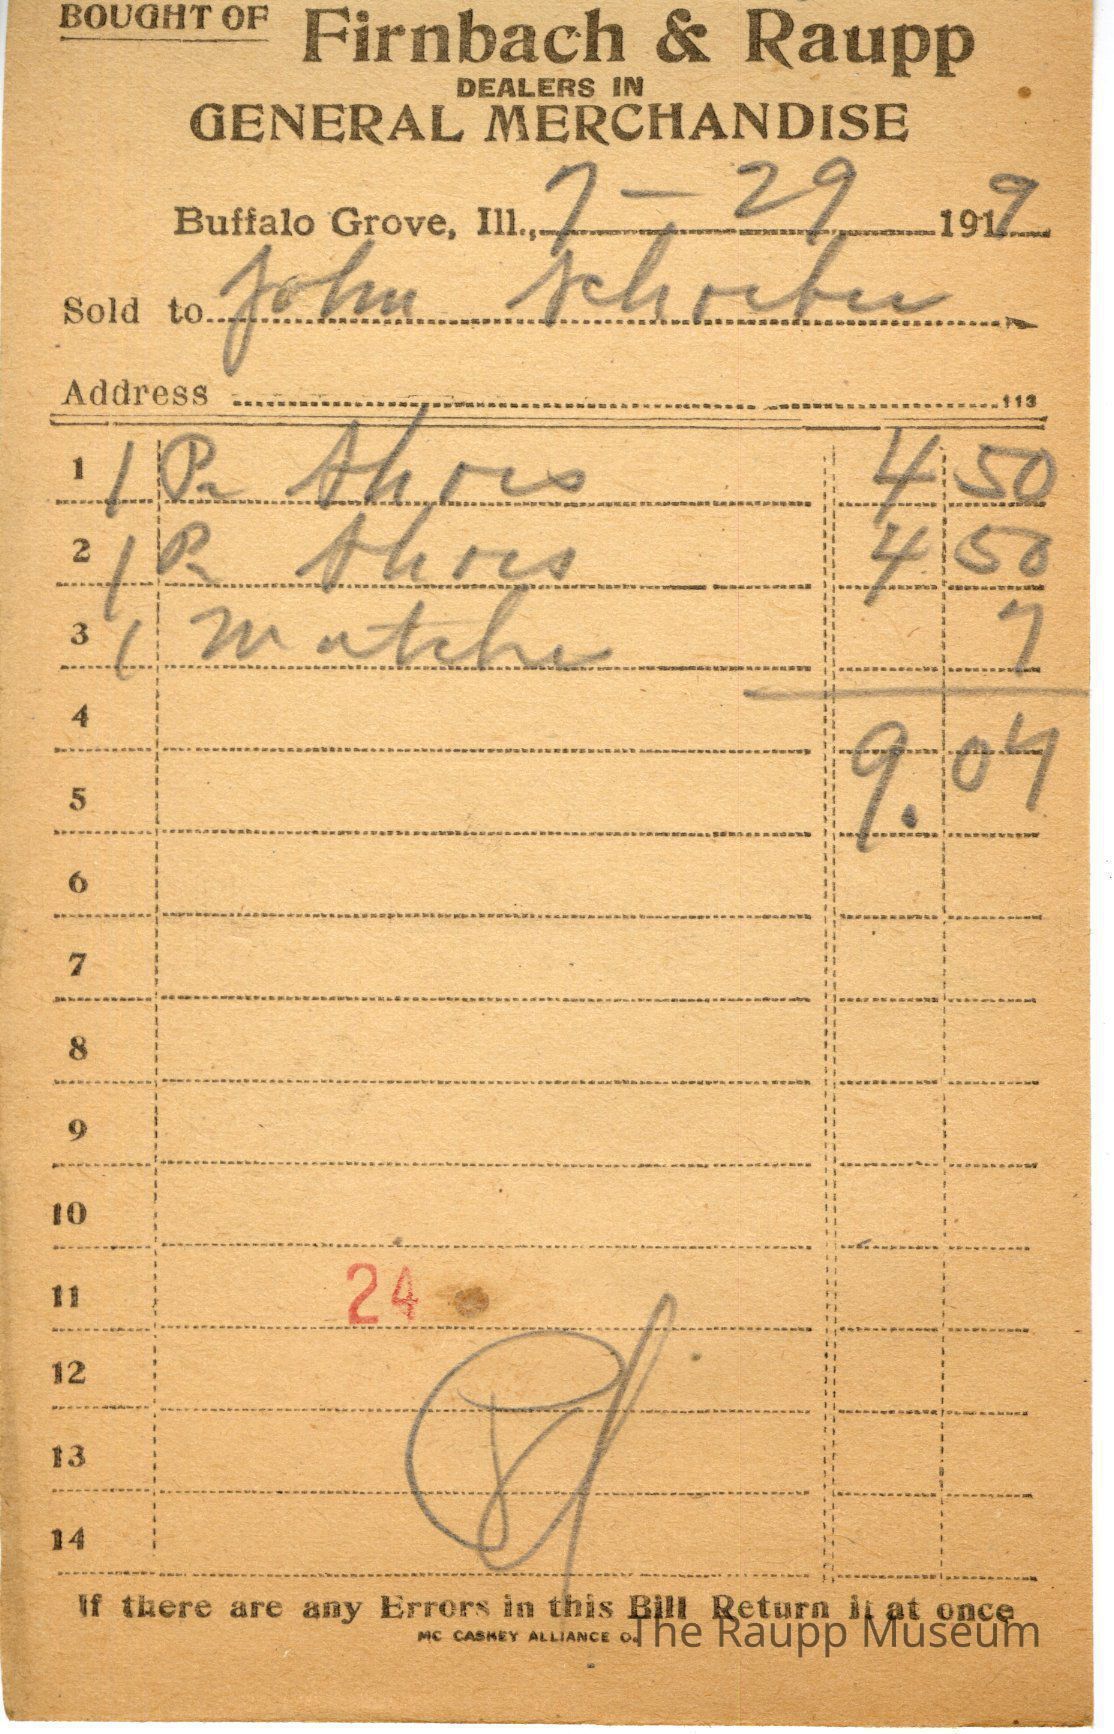 BOUGHT OF Firnbach & Raupp
DEALERS IN
GENERAL MERCHANDISE
Buffalo Grove, Ill., 7-29 1919
Sold to John
Address 113
1 1 Pr Shoes 4 50
2 1 Pr Shoes 4 50
3 1 Matche 7
4
9.07
5
6
7
8
9
10
11 24
12
13
14
If there are any Errors in this Bill Return it at once
MC CASKEY ALLIANCE O.
The Raupp Museum